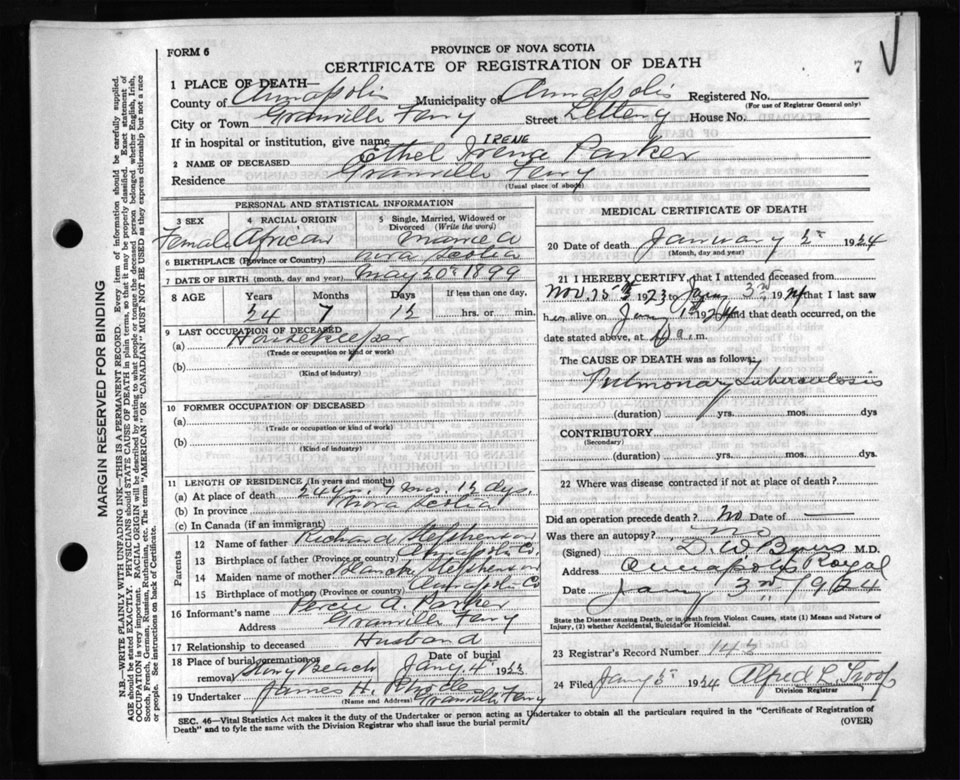 FORM 6
PROVINCE OF NOVA SCOTIA
CERTIFICATE OF REGISTRATION OF DEATH
7
1 PLACE OF DEATH—
County of Annapolis Municipality of Annapolis Registered No.
(For use of Registrar General only)
City or Town Granville Ferry Street House No.
If in hospital or institution, give name
IRENE
2 NAME OF DECEASED Ethel Irene Parker
Residence Granville Ferry
(Usual place of abode)
PERSONAL AND STATISTICAL INFORMATION
3 SEX
Female
4 RACIAL ORIGIN
African
5 Single, Married, Widowed or Divorced (Write the word)
Married
6 BIRTHPLACE (Province or Country) Nova Scotia
7 DATE OF BIRTH (month, day and year) May 20 1899
8 AGE Years Months Days If less than one day,
24 7 13 hrs. or min.
9 LAST OCCUPATION OF DECEASED
(a) Housekeeper
(Trade or occupation or kind or work)
(b)
(Kind of industry)
10 FORMER OCCUPATION OF DECEASED
(a)
(Trade or occupation or kind of work)
(b)
(Kind of industry)
11 LENGTH OF RESIDENCE (In years and months)
(a) At place of death 24 yrs. 7 mos. 13 dys.
(b) In province Nova Scotia
(c) In Canada (if an immigrant)
Parents
12 Name of father Richard Stephenson
13 Birthplace of father (Province or country) Annapolis Co.
14 Maiden name of mother Blanche Stephenson
15 Birthplace of mother (Province or country) Annapolis Co
16 Informant's name A. Parker
Address Granville Ferry
17 Relationship to deceased Husband
18 Place of burial, cremation or removal Stony Beach Date of burial Jany 4
19 Undertaker James H.
(Name and Address) Granville Ferry
MEDICAL CERTIFICATE OF DEATH
20 Date of death January 2 1924
(Month, day and year)
21 I HEREBY CERTIFY, that I attended deceased from
Nov. 15 1923 to Jany 3rd 1924 that I last saw
her alive on Jany 1st 1924 and that death occurred, on
date stated above, at a. m.
The CAUSE OF DEATH was as follows:
Pulmonary Tuberculosis
(duration) yrs. mos. dys
CONTRIBUTORY
(Secondary)
(duration) yrs. mos. dys.
22 Where was disease contracted if not at place of death?
Did an operation precede death? No Date of —
Was there an autopsy? no
(Signed) D. W. M.D.
Address Annapolis Royal
Date Jany 3rd 1924
State the Disease causing Death, or in death from Violent Causes, state (1) Means and Nature of
Injury, (2) whether Accidental, Suicidal or Homicidal.
23 Registrar's Record Number 143
24 Filed Jany 1924 Alfred
Division Registrar
SEC. 46—Vital Statistics Act makes it the duty of the Undertaker or person acting as Undertaker to obtain all the particulars required in the "Certificate of Registration of
Death" and to fyle the same with the Division Registrar who shall issue the burial permit.
(OVER)
MARGIN RESERVED FOR BINDING
N.B.—WRITE PLAINLY WITH UNFADING INK—THIS IS A PERMANENT RECORD. Every item of information should be carefully supplied.
AGE should be stated EXACTLY. PHYSICIANS should STATE CAUSE OF DEATH in plain terms, so that it may be properly classified. Exact statement of
OCCUPATION is very important. RACIAL ORIGIN will be described by stating to what people or tongue the deceased person belonged whether English, Irish,
Scotch, French, German, Russian, Ruthenian, etc. The terms "AMERICAN" OR "CANADIAN" MUST NOT BE USED as they express citizenship but not a race
or people. See instructions on back of Certificate.